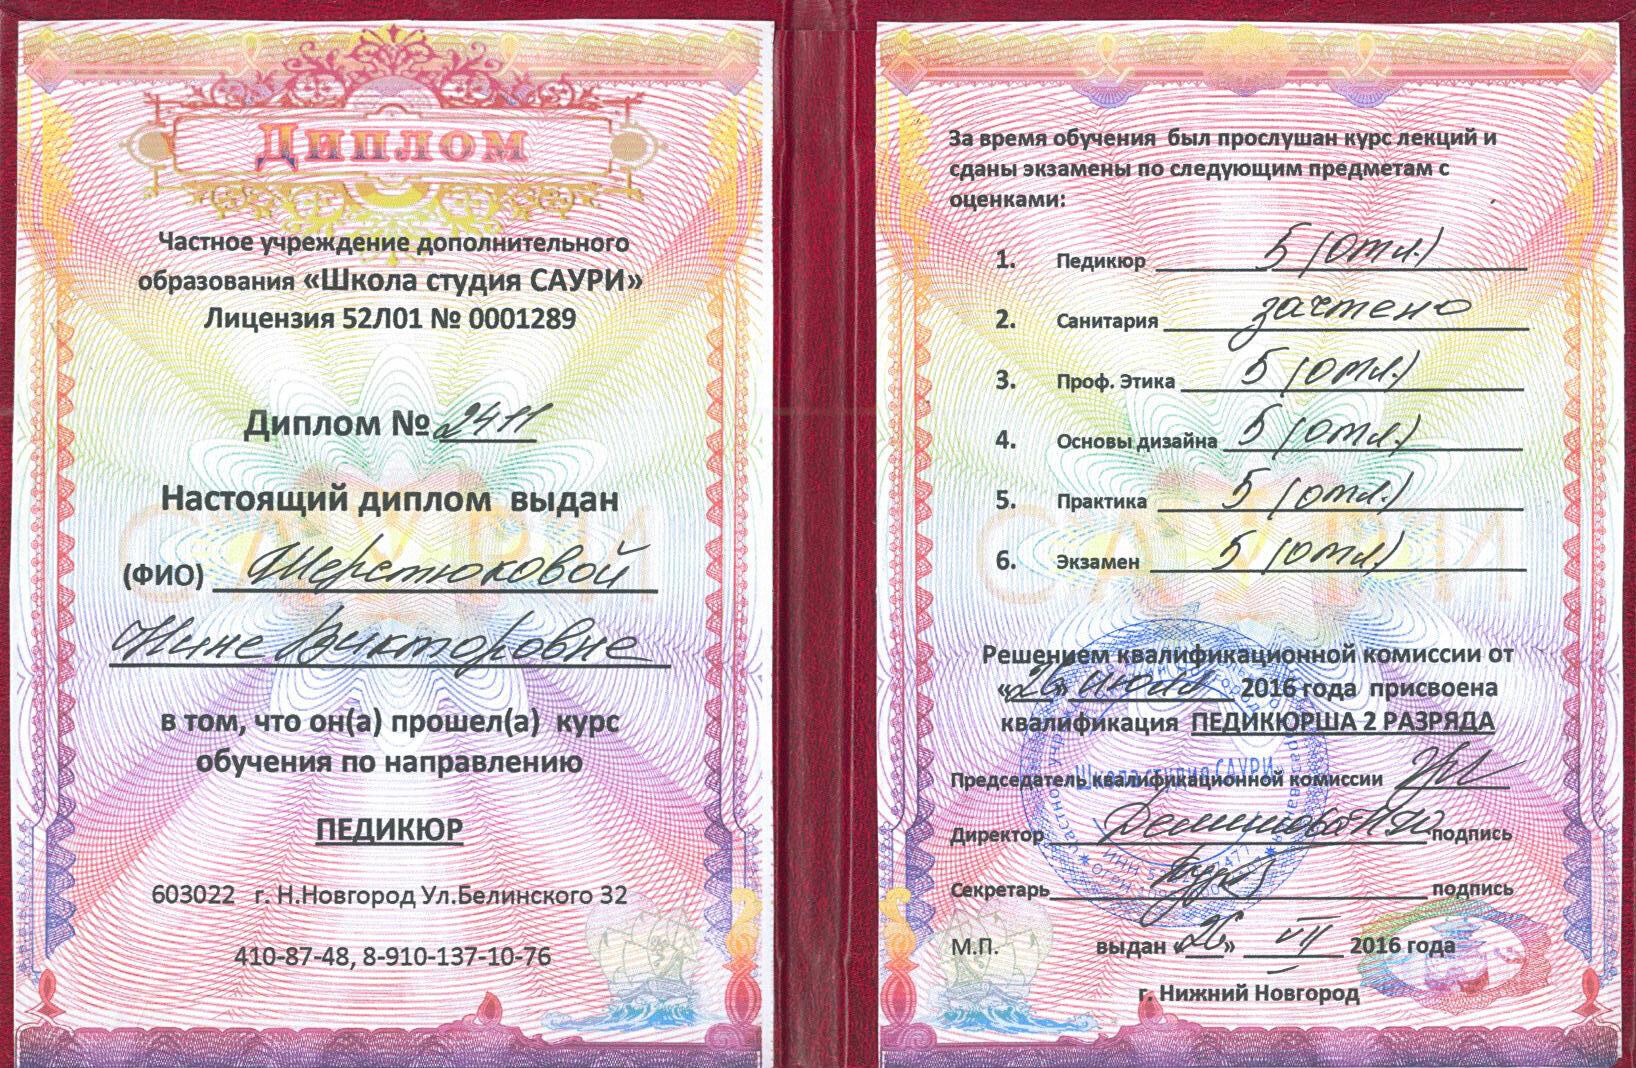 Диплом
Частное учреждение дополнительного
образования «Школа студия САУРИ»
Лицензия 52Л01 № 0001289
Диплом № 2411
Настоящий диплом выдан
САУРИ
(ФИО) Шерстюковой
Нине Викторовне
в том, что он(а) прошел(а) курс
обучения по направлению
ПЕДИКЮР
603022 г. Н.Новгород Ул.Белинского 32
410-87-48, 8-910-137-10-76
За время обучения был прослушан курс лекций и
сданы экзамены по следующим предметам с
оценками:
1. Педикюр 5 (отл.)
2. Санитария зачтено
3. Проф. Этика 5 (отл.)
4. Основы дизайна 5 (отл.)
5. Практика 5 (отл.)
САУРИ
6. Экзамен 5 (отл.)
Решением квалификационной комиссии от
«26» июля 2016 года присвоена
квалификация ПЕДИКЮРША 2 РАЗРЯДА
Школа студия САУРИ
Председатель квалификационной комиссии
Директор подпись
Секретарь подпись
М.П. выдан «26» VII 2016 года
г. Нижний Новгород